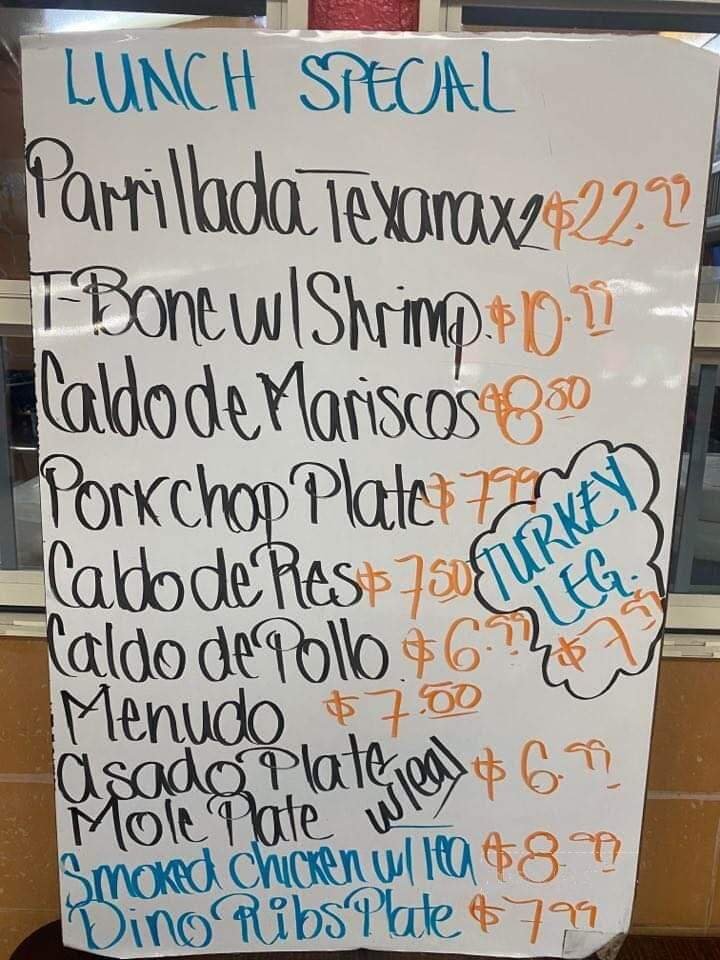 LUNCH SPECIAL
Parrillada Texana x2 $22.99
T-Bone w/ Shrimp. $10.99
Caldo de Mariscos $8.50
Porkchop Plate $7.99
TURKEY
LEG.
$7.99
Caldo de Res $7.50
Caldo de Pollo $6.99
Menudo $7.50
asado Plate w/tea $6.99
Mole Plate
Smoked chicken w/ Tea $8.99
Dino Ribs Plate $7.99